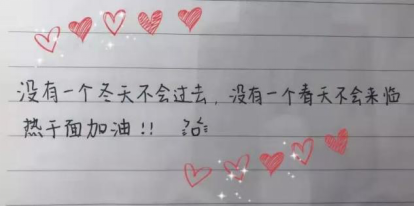 没有一个冬天不会过去，没有一个春天不会来临
热干面加油!!